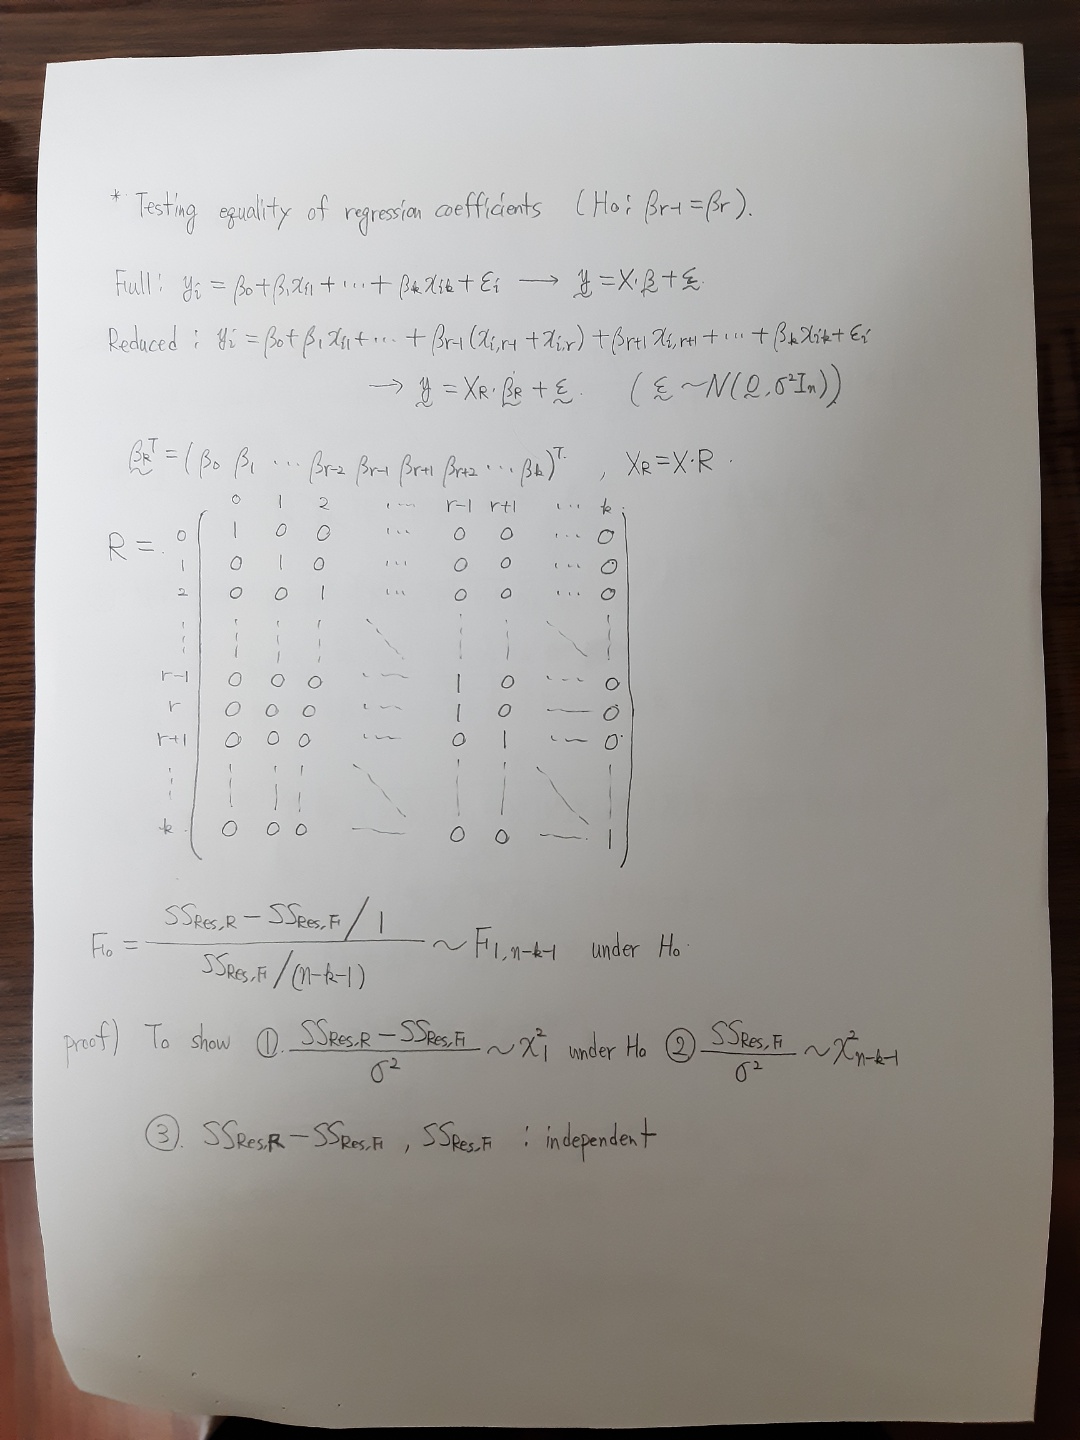 * Testing equality of regression coefficients (H₀: βr-1 = βr).
Full: yᵢ = β₀ + β₁xᵢ₁ + ⋯ + βₖxᵢₖ + εᵢ → y = X·β + ε.
Reduced : yᵢ = β₀ + β₁xᵢ₁ + ⋯ + βr-1(xi,r-1 + xi,r) + βr+1 xi,r+1 + ⋯ + βₖxᵢₖ + εᵢ
→ y = XR·βR + ε. (ε ~ N(0, σ²Iₙ))
βRᵀ = (β₀ β₁ ⋯ βr-2 βr-1 βr+1 βr+2 ⋯ βₖ)ᵀ. , XR = X·R .
0 1 2 ⋯ r-1 r+1 ⋯ k
R = 0 1 0 0 ⋯ 0 0 ⋯ 0
1 0 1 0 ⋯ 0 0 ⋯ 0
2 0 0 1 ⋯ 0 0 ⋯ 0
⋮ ⋮ ⋮ ⋮ ⋱ ⋮ ⋮ ⋱ ⋮
r-1 0 0 0 ⋯ 1 0 ⋯ 0
r 0 0 0 ⋯ 1 0 — 0
r+1 0 0 0 ⋯ 0 1 ⋯ 0
⋮ ⋮ ⋮ ⋮ ⋱ ⋮ ⋮ ⋱ ⋮
k 0 0 0 — 0 0 — 1
SSRes,R - SSRes,F / 1
F₀ = ~ F1,n-k-1 under H₀.
SSRes,F / (n-k-1)
proof) To show ①. (SSRes,R - SSRes,F)/σ² ~ χ²₁ under H₀ ② SSRes,F/σ² ~ χ²n-k-1
③. SSRes,R - SSRes,F , SSRes,F : independent